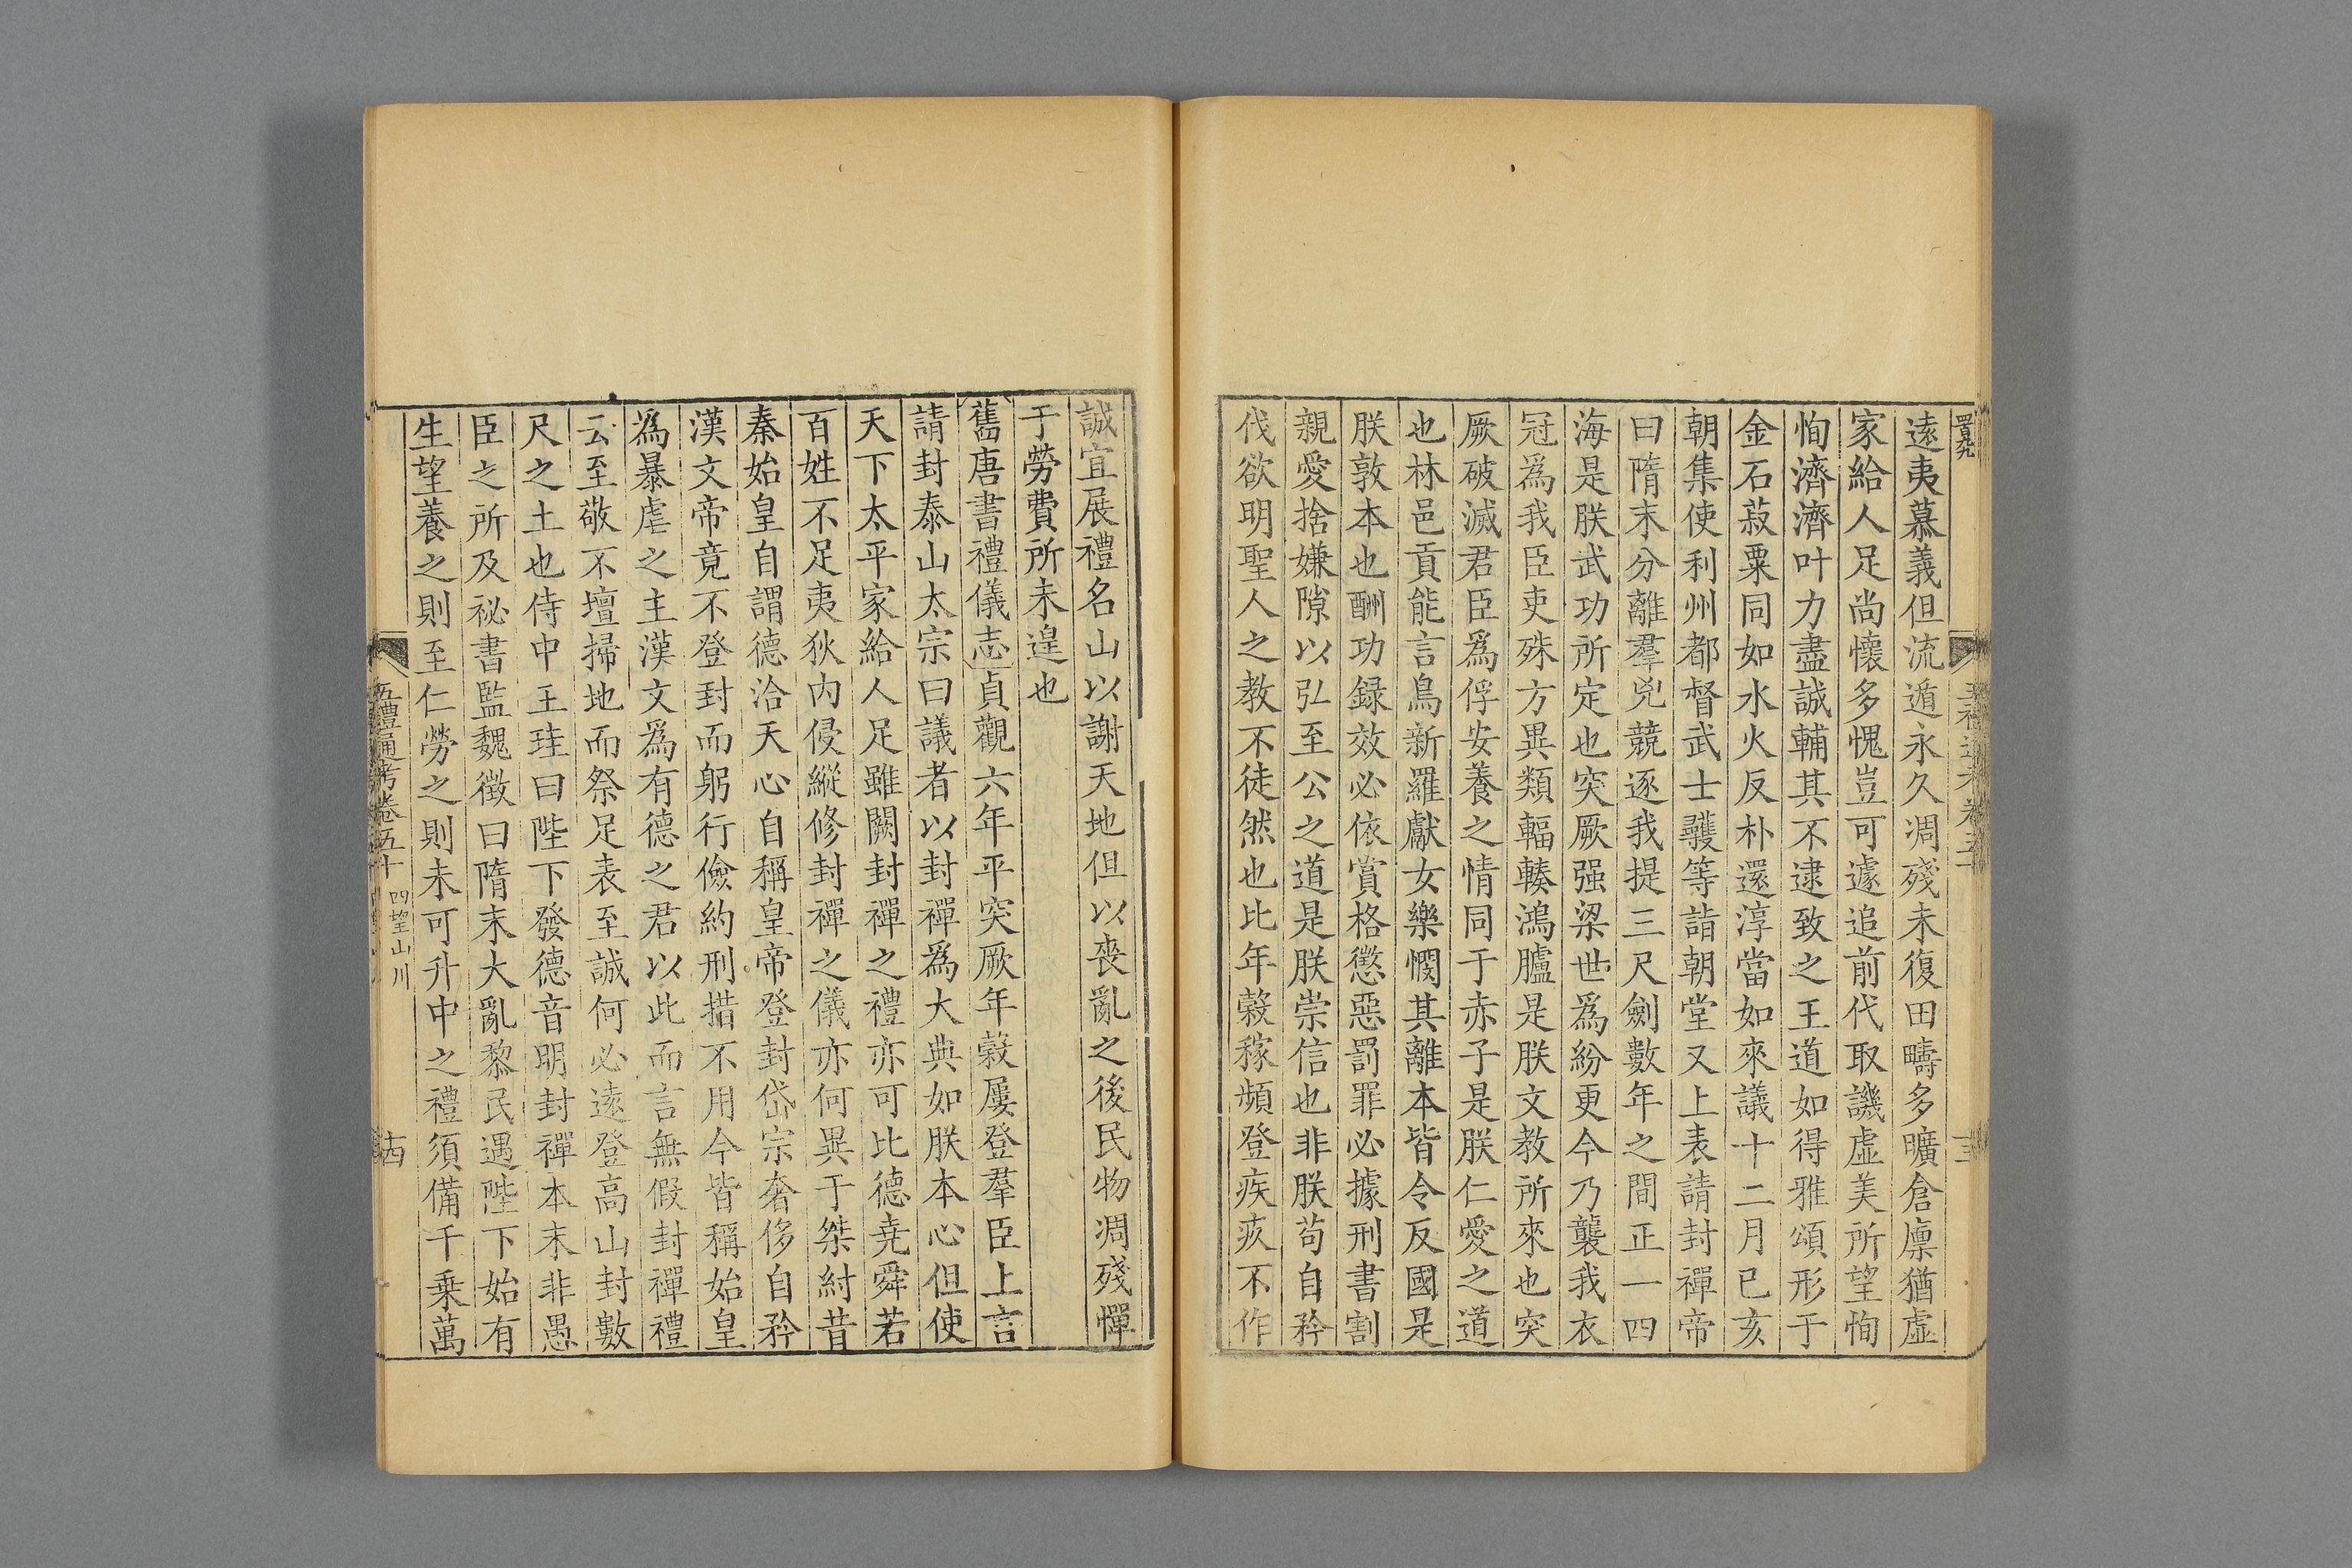 遠夷慕義但流遁永久凋殘未復田疇多曠倉廪猶虛
家給人足尚懷多愧豈可遽追前代取譏虛美所望恂
恂濟濟叶力盡誠輔其不逮致之王道如得雅頌形于
金石菽粟同如水火反朴還淳當如來議十二月己亥
朝集使利州都督武士彠等詣朝堂又上表請封禪帝
曰隋末分離羣兇競逐我提三尺劍數年之間正一四
海是朕武功所定也突厥强梁世爲紛更今乃襲我衣
冠爲我臣吏殊方異類輻輳鴻臚是朕文教所來也突
厥破滅君臣爲俘安養之情同于赤子是朕仁愛之道
也林邑貢能言鳥新羅獻女樂憫其離本皆令反國是
朕敦本也酬功録效必依賞格懲惡罰罪必據刑書割
親愛捨嫌隙以弘至公之道是朕崇信也非朕苟自矜
伐欲明聖人之教不徒然也比年穀稼頻登疾疢不作
誠宜展禮名山以謝天地但以喪亂之後民物凋殘憚
于勞費所未遑也
舊唐書禮儀志貞觀六年平突厥年穀屢登羣臣上言
請封泰山太宗曰議者以封禪爲大典如朕本心但使
天下太平家給人足雖闕封禪之禮亦可比德堯舜若
百姓不足夷狄内侵縱修封禪之儀亦何異于桀紂昔
秦始皇自謂德洽天心自稱皇帝登封岱宗奢侈自矜
漢文帝竟不登封而躬行儉約刑措不用今皆稱始皇
爲暴虐之主漢文爲有德之君以此而言無假封禪禮
云至敬不壇掃地而祭足表至誠何必遠登高山封數
尺之土也侍中王珪曰陛下發德音明封禪本末非愚
臣之所及祕書監魏徵曰隋末大亂黎民遇陛下始有
生望養之則至仁勞之則未可升中之禮須備千乗萬
五禮通考卷五十 四望山川
十四